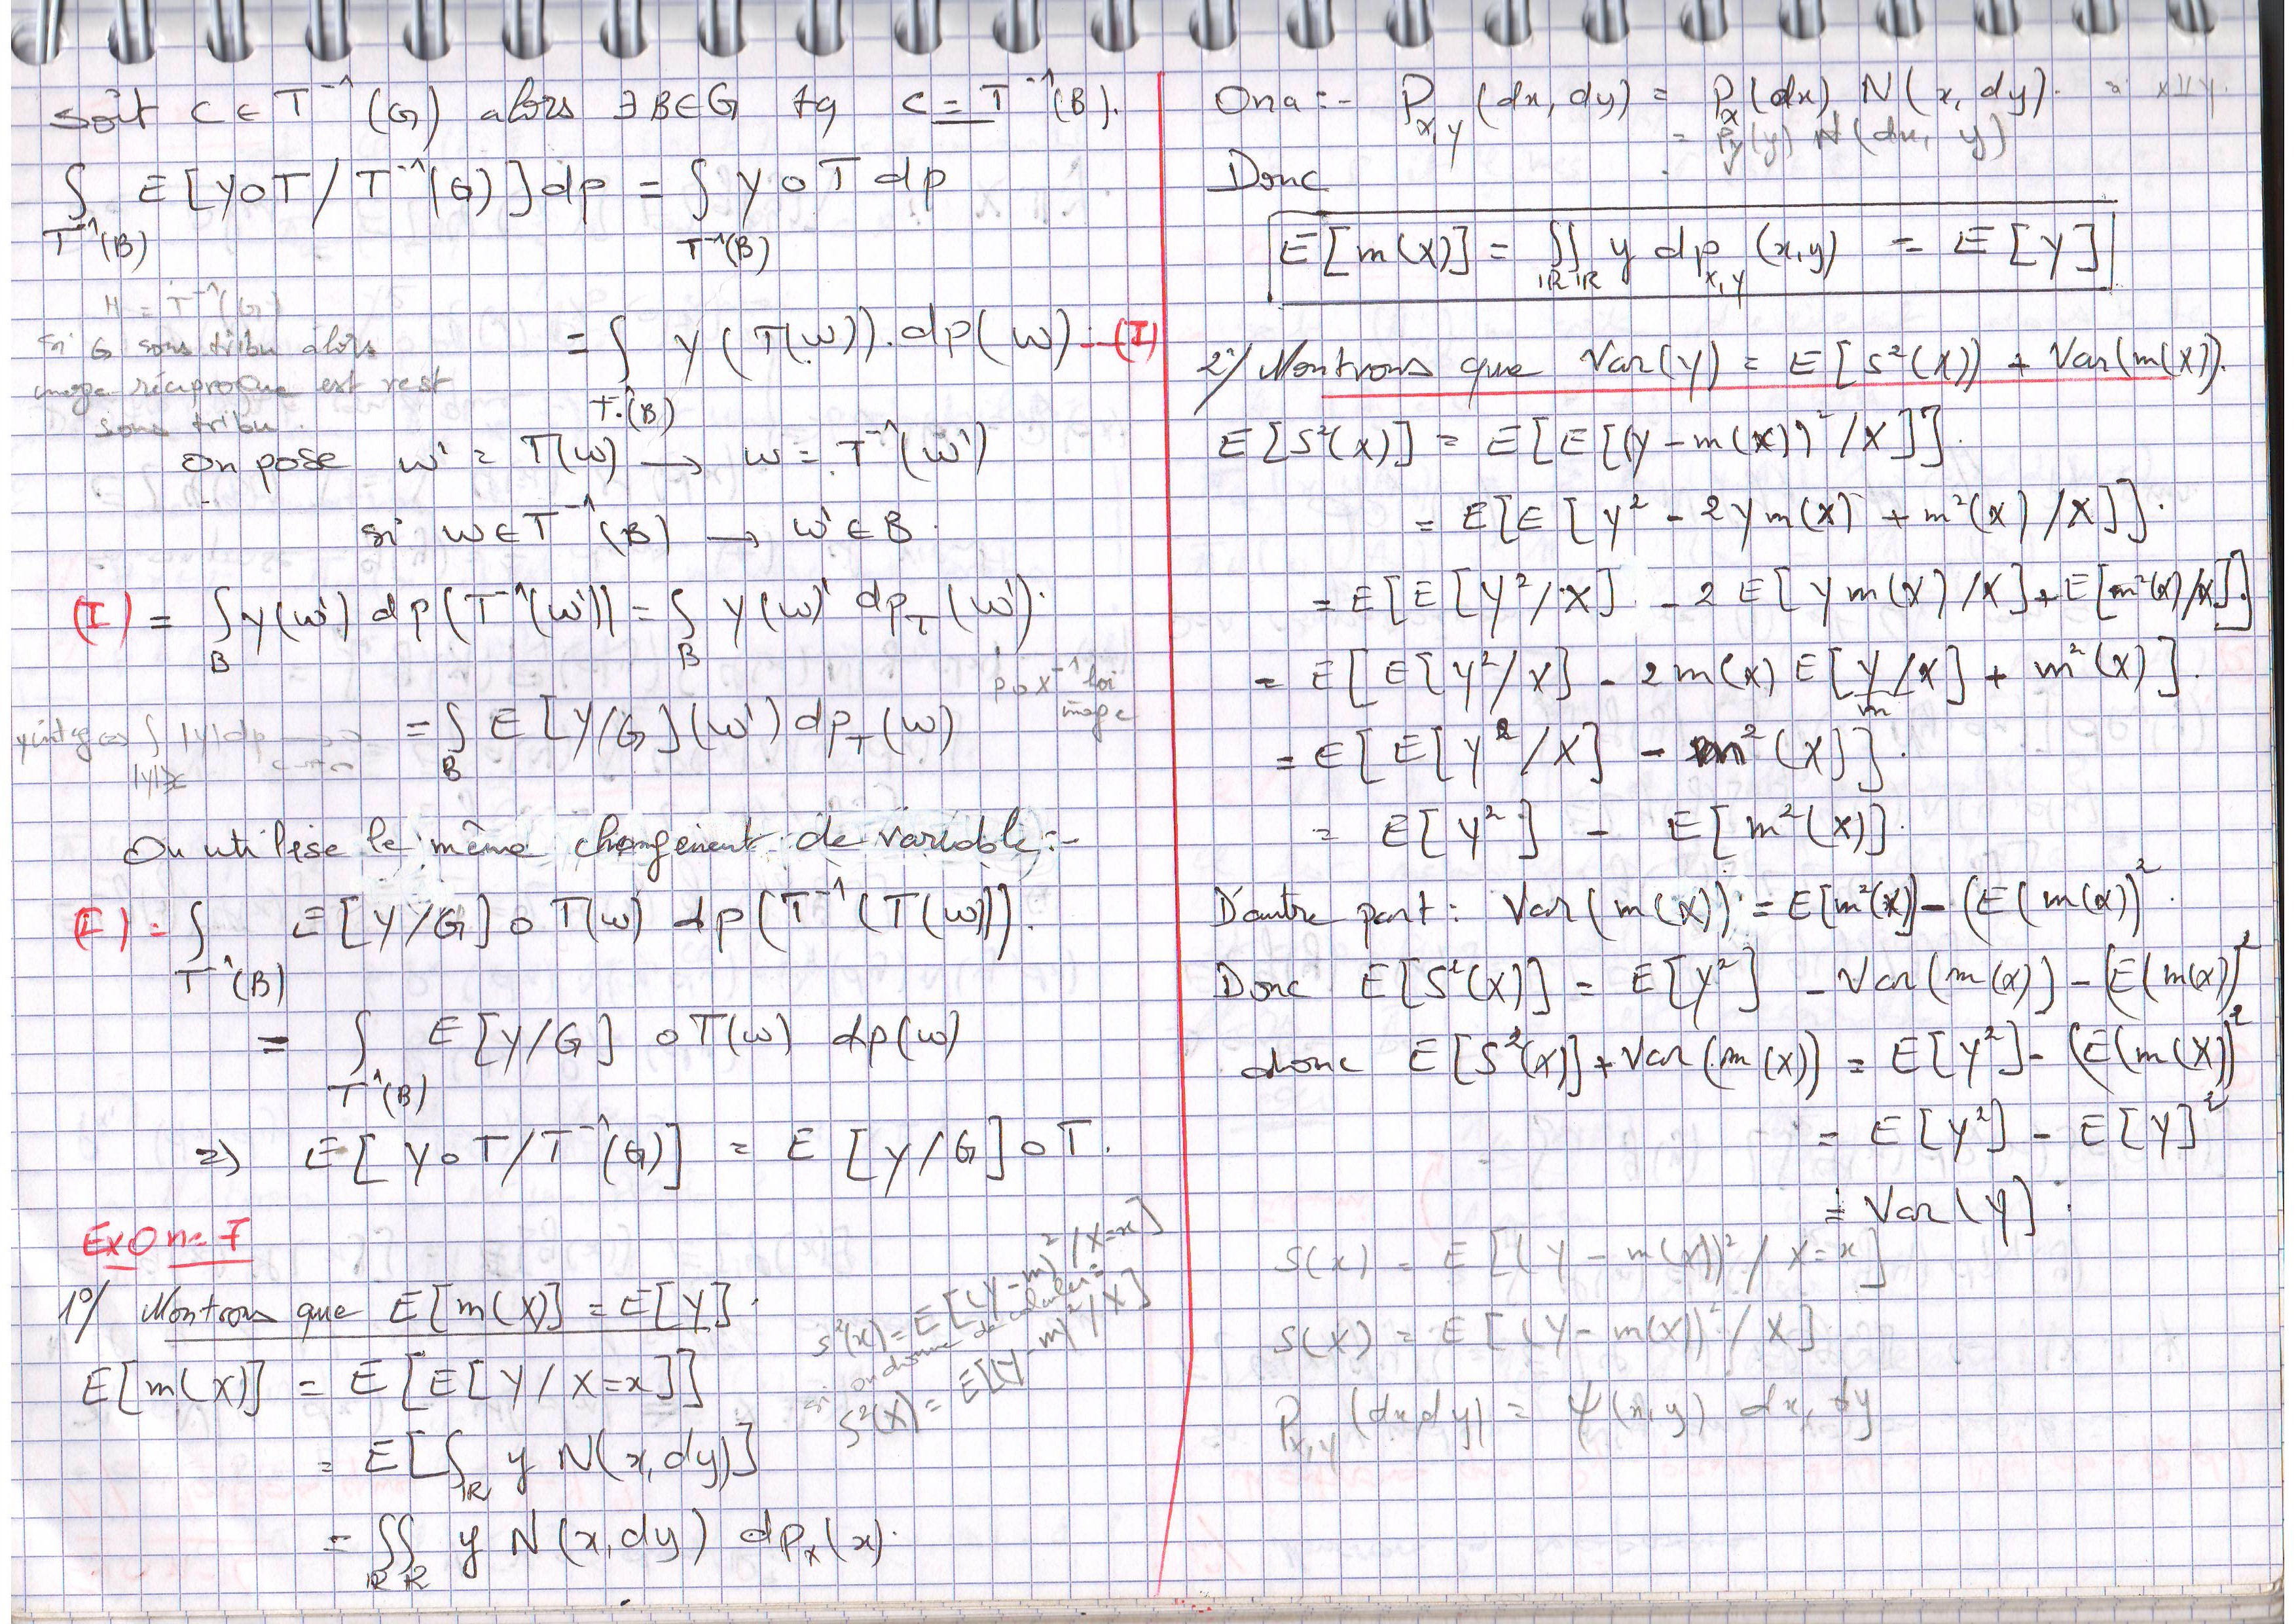 Soit C ∈ T⁻¹(G) alors ∃ B ∈ G tq C = T⁻¹(B).
∫_{T⁻¹(B)} E[Y∘T / T⁻¹(G)] dp = ∫_{T⁻¹(B)} Y∘T dp
H = T⁻¹(G)
si G sous tribu alors
image réciproque est rest
sous tribu.
= ∫_{T⁻¹(B)} Y(T(w)). dp(w) --- (I)
On pose w' = T(w) → w = T⁻¹(w')
si w ∈ T⁻¹(B) → w' ∈ B.
(I) = ∫_B Y(w') dp(T⁻¹(w')) = ∫_B Y(w)' dp_T(w').
p∘X⁻¹ loi
image
∫_{|Y|>c} |Y| dp → 0
c→+∞
= ∫_B E[Y/G](w') dp_T(w)
On utilise le même changement de variable :-
(I) = ∫_{T⁻¹(B)} E[Y/G] ∘ T(w) dp(T⁻¹(T(w))).
= ∫_{T⁻¹(B)} E[Y/G] ∘ T(w) dp(w)
⇒ E[Y∘T / T⁻¹(G)] = E[Y/G] ∘ T.
Exo n° 7
1°/ Montrons que E[m(X)] = E[Y].
E[m(X)] = E[E[Y/X=x]]
= E[∫_ℝ y N(x,dy)]
= ∫_ℝ∫_ℝ y N(x,dy) dp_x(x).
S²(x) = E[(Y-m)² / X=x]
si on donne de calculer :
S²(X) = E[(Y-m)² / X]
On a :- P_{X,Y}(dx,dy) = P_X(dx) N(x,dy). si X⊥Y.
= P_Y(y) N(dx, y)
Donc
E[m(X)] = ∫_ℝ∫_ℝ y dp_{X,Y}(x,y) = E[Y]
2°/ Montrons que Var(Y) = E[S²(X)) + Var(m(X)).
E[S²(X)] = E[E[(Y-m(X))² / X]].
= E[E[Y² - 2Ym(X) + m²(X) / X]].
= E[E[Y²/X] - 2E[Ym(X)/X] + E[m²(X)/X]]
= E[E[Y²/X] - 2m(X) E[Y/X] + m²(X)].
m
= E[E[Y²/X] - m²(X)].
= E[Y²] - E[m²(X)].
D'autre part : Var(m(X)) = E[m²(X)] - (E(m(X))².
Donc E[S²(X)] = E[Y²] - Var(m(X)] - (E(m(X))²
donc E[S²(X)] + Var(m(X)) = E[Y²] - (E(m(X))²
= E[Y²] - E[Y]²
= Var(Y].
S(x) = E[(Y-m(X))² / X=x]
S(X) = E[(Y-m(X))² / X]
P_{X,Y}(dx,dy) = Ψ(x,y) dx, dy